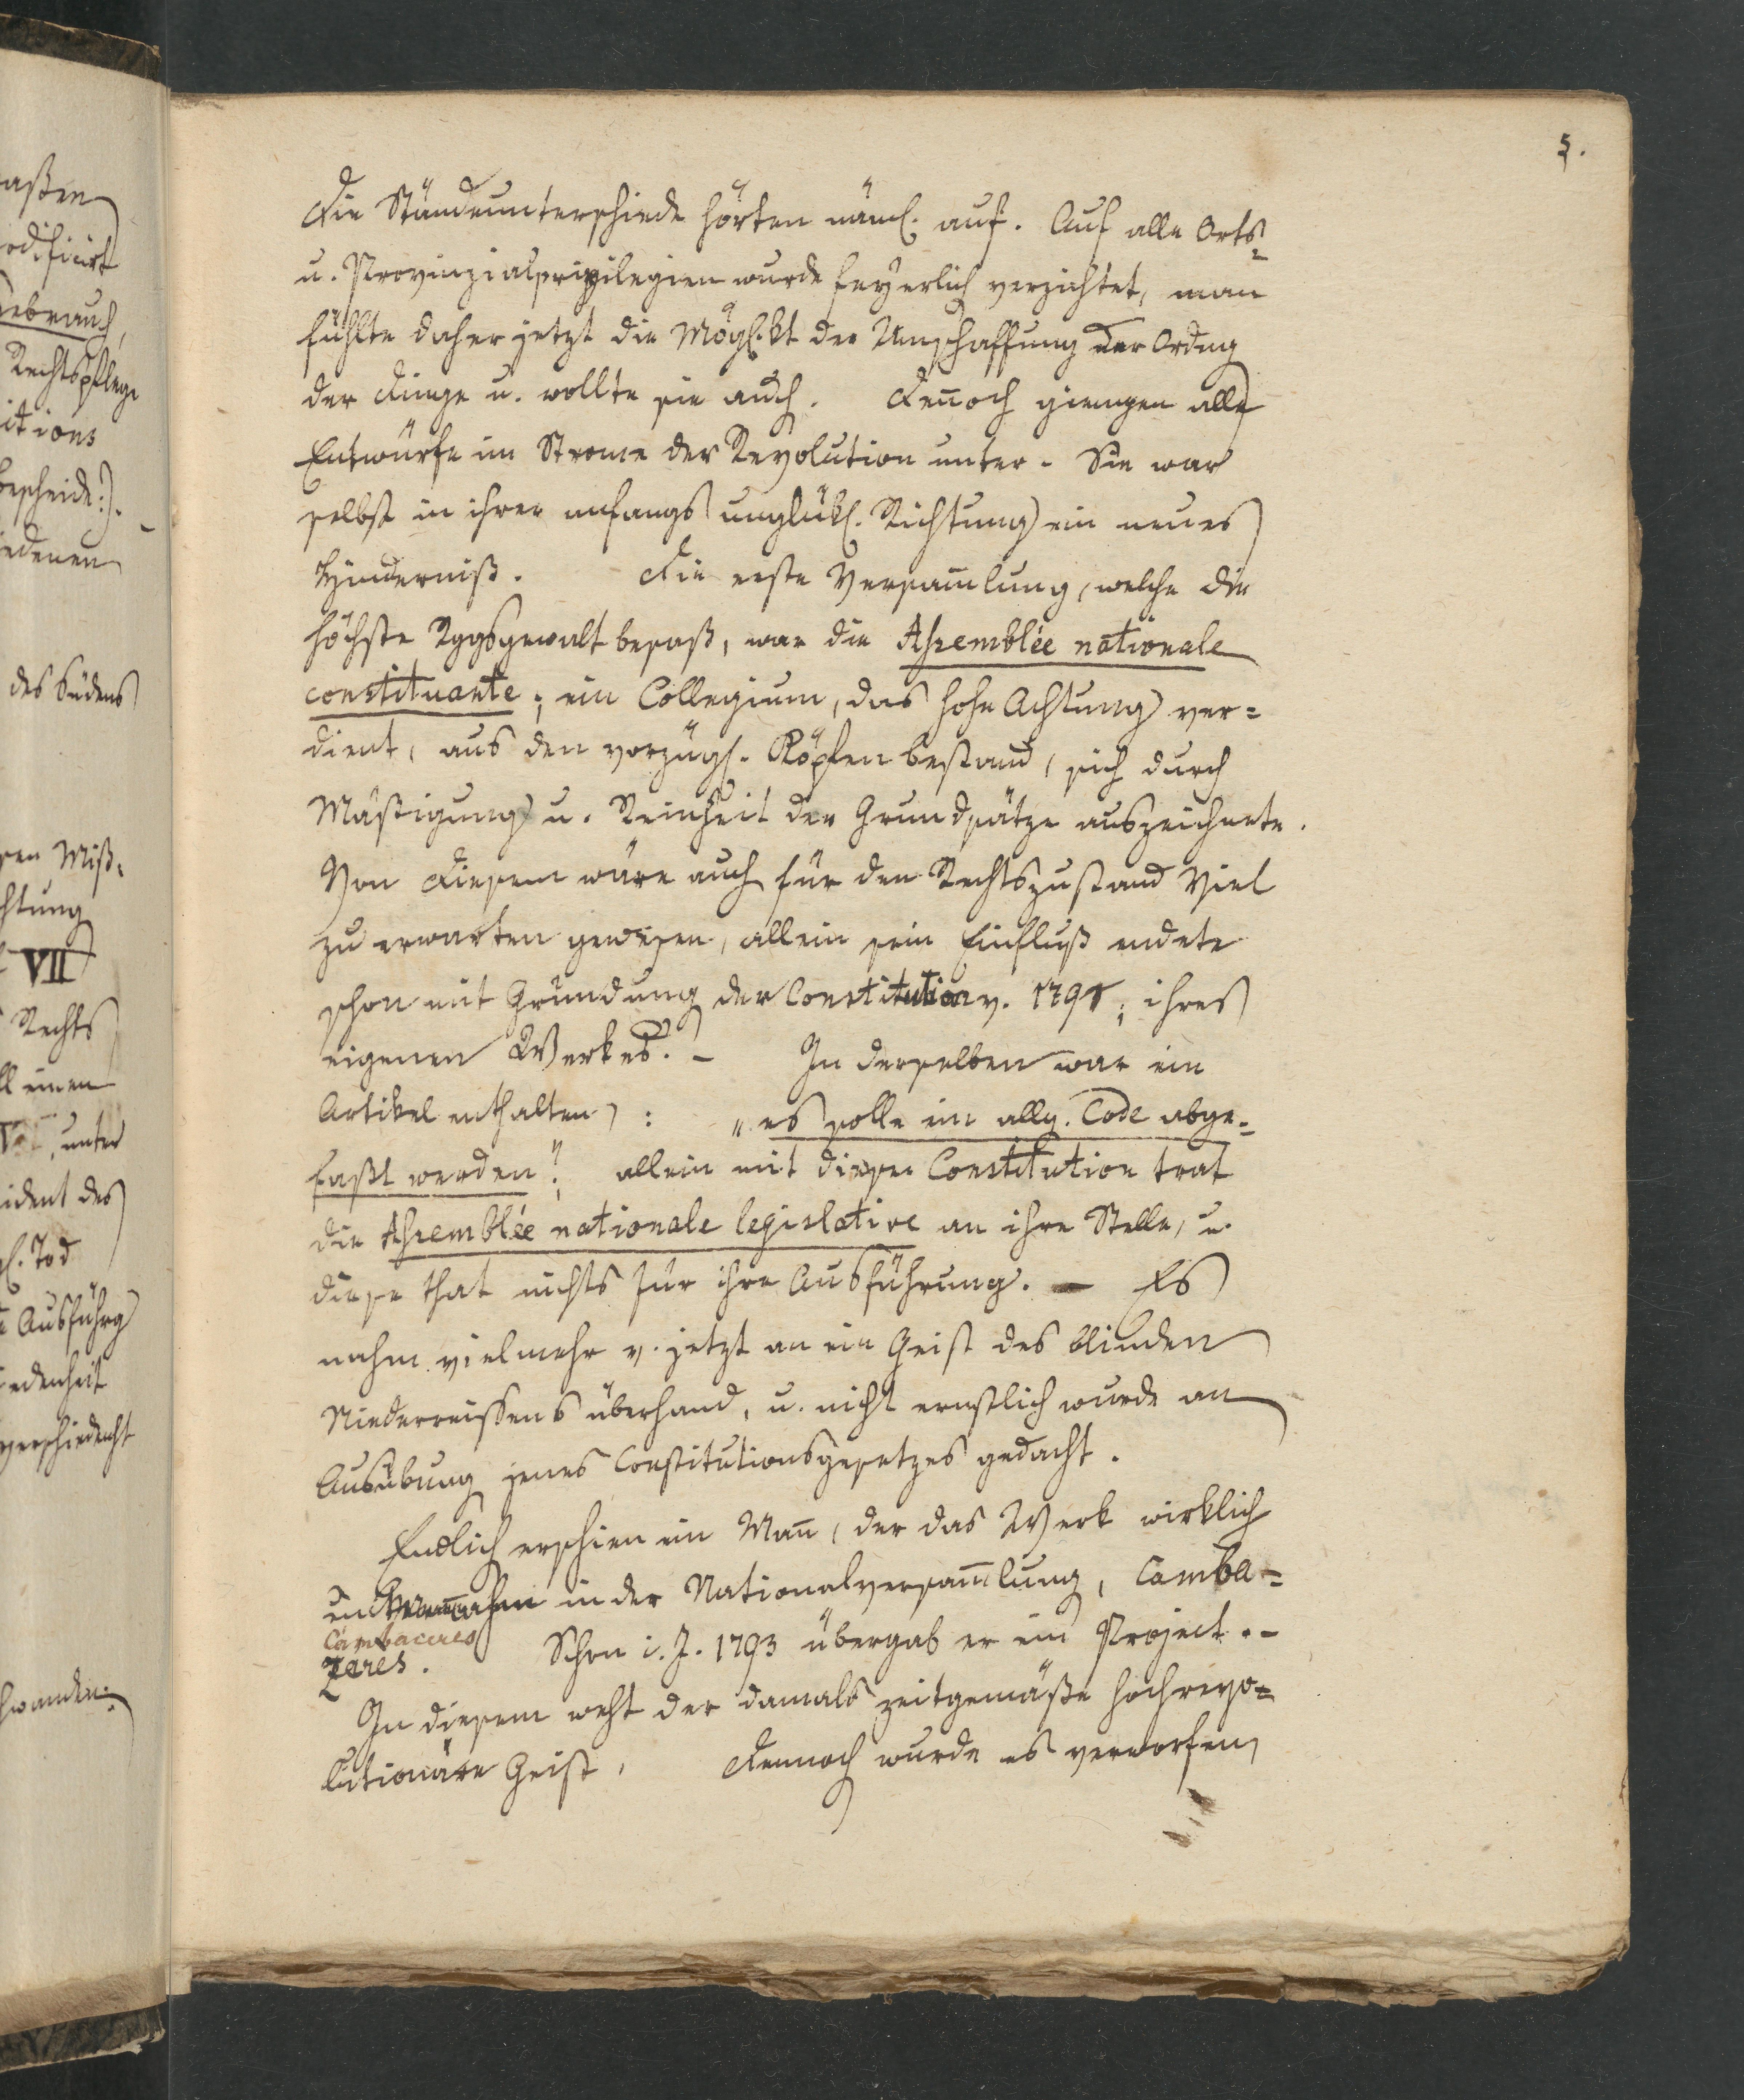 5.
Die Ständeunterschiede hörten näml. auf. Auf alle Orts-
u. Provinzialprivilegien wurde feyerlich verzichtet, man
fühlte daher jetzt die Mögl.kt der Umschaffung der Ordng
der Dinge u. wollte sie auch. Deñoch giengen alle
Entwürfe im Strome der Revolution unter. Sie war
selbst in ihrer anfangs unglükl. Richtung ein neues
Hinderniß. Die erste Versam̄lung, welche die
höchste Rggsgewalt besaß, war die Assemblée nationale
constituante; ein Collegium, das hohe Achtung ver=
dient, aus den vorzügl. Köpfen bestand, sich durch
Mäßigung u. Reinheit der Grundsätze auszeichnete.
Von Diesem wäre auch für den Rechtszustand Viel
zu erwarten gewesen, allein sein Einfluß endete
schon mit Gründung der Constitution v. 1791; ihres
eigenen Werkes. – In derselben war ein
Artikel enthalten: „es solle ein allg. Code abge-
faßt werden"; allein mit dieser Constitution trat
die Assemblée nationale legislative an ihre Stelle, u.
diese that nichts für ihre Ausführung. – Es
nahm vielmehr v. jetzt an ein Geist des blinden
Niederreissens überhand, u. nicht ernstlich wurde an
Ausübung jenes Constitutionsgesetzes gedacht.
Endlich erschien ein Mañ, der das Werk wirklich
unternahm in der Nationalversam̄lung, Camba=
Cambaceres
zeres. Schon i. J. 1793 übergab er ein Project. –
In diesem weht der damals zeitgemäße hochrevo=
lutionäre Geist, dennoch wurde es verworfen,
aßen
odificirt
Gebrauch,
Rechtspflege
itions
bescheide:).
iedenen
des Südens
ren Miß-
chtung
VII
Rechts
ll einen
, unter
ident des
l. Tod
Ausführg
iedenheit
verschiedenht
hwanden.